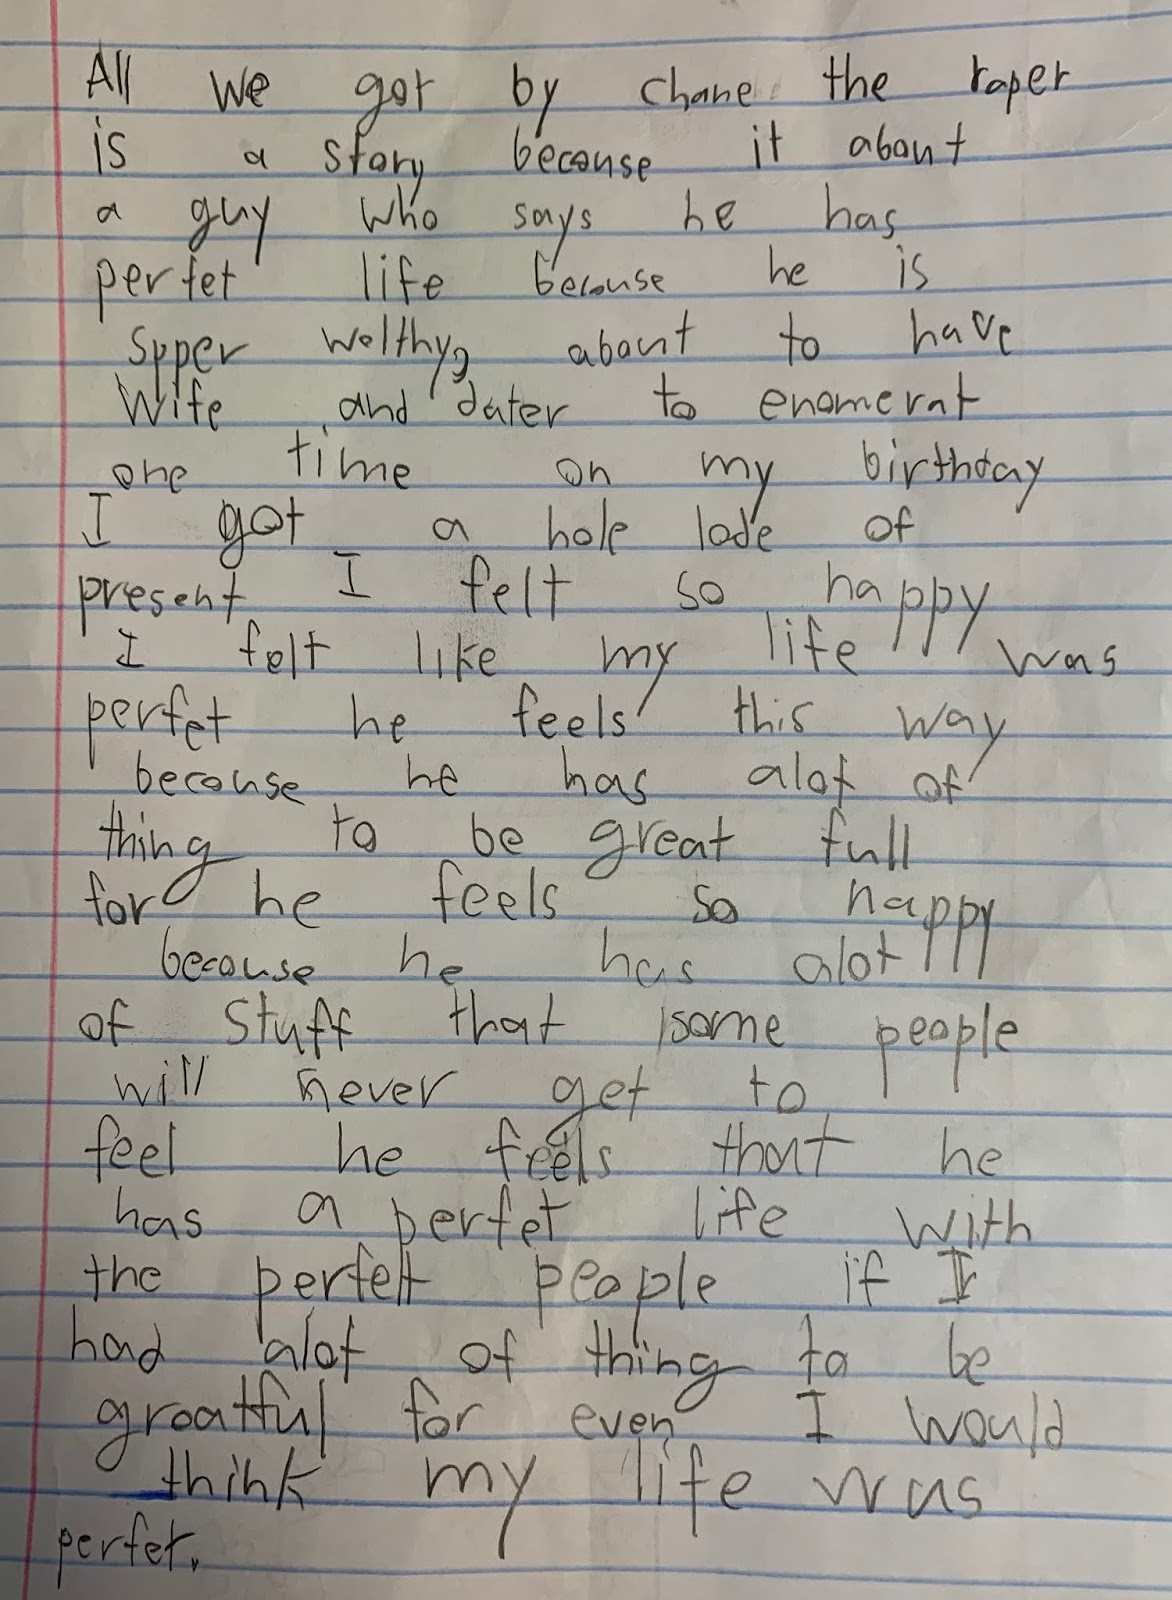 All we got by chane the raper
is a story because it about
a guy who says he has
perfet life because he is
Spper welthy, about to have
Wife and dater to enomerat
one time on my birthday
I got a hole lode of
present I felt so happy
I felt like my life was
perfet he feels this way
because he has alot of
thing to be great full
for he feels so happy
because he has alot
of stuff that some people
will never get to
feel he feels that he
has a perfet life with
the perfelt people if I
had alot of thing to be
greatful for even I would
think my life was
perfet.